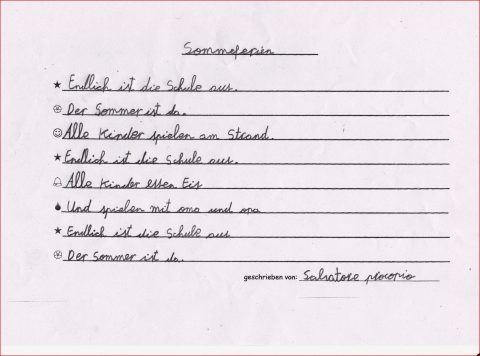 Sommeferien
Endlich ist die Schule aus.
Der Sommer ist da.
Alle Kinder spielen am Strand.
Endlich ist die Schule aus.
Alle Kinder essen Eis
Und spielen mit oma und opa
Endlich ist die Schule aus
Der Sommer ist da.
geschrieben von: Salvatore procopio